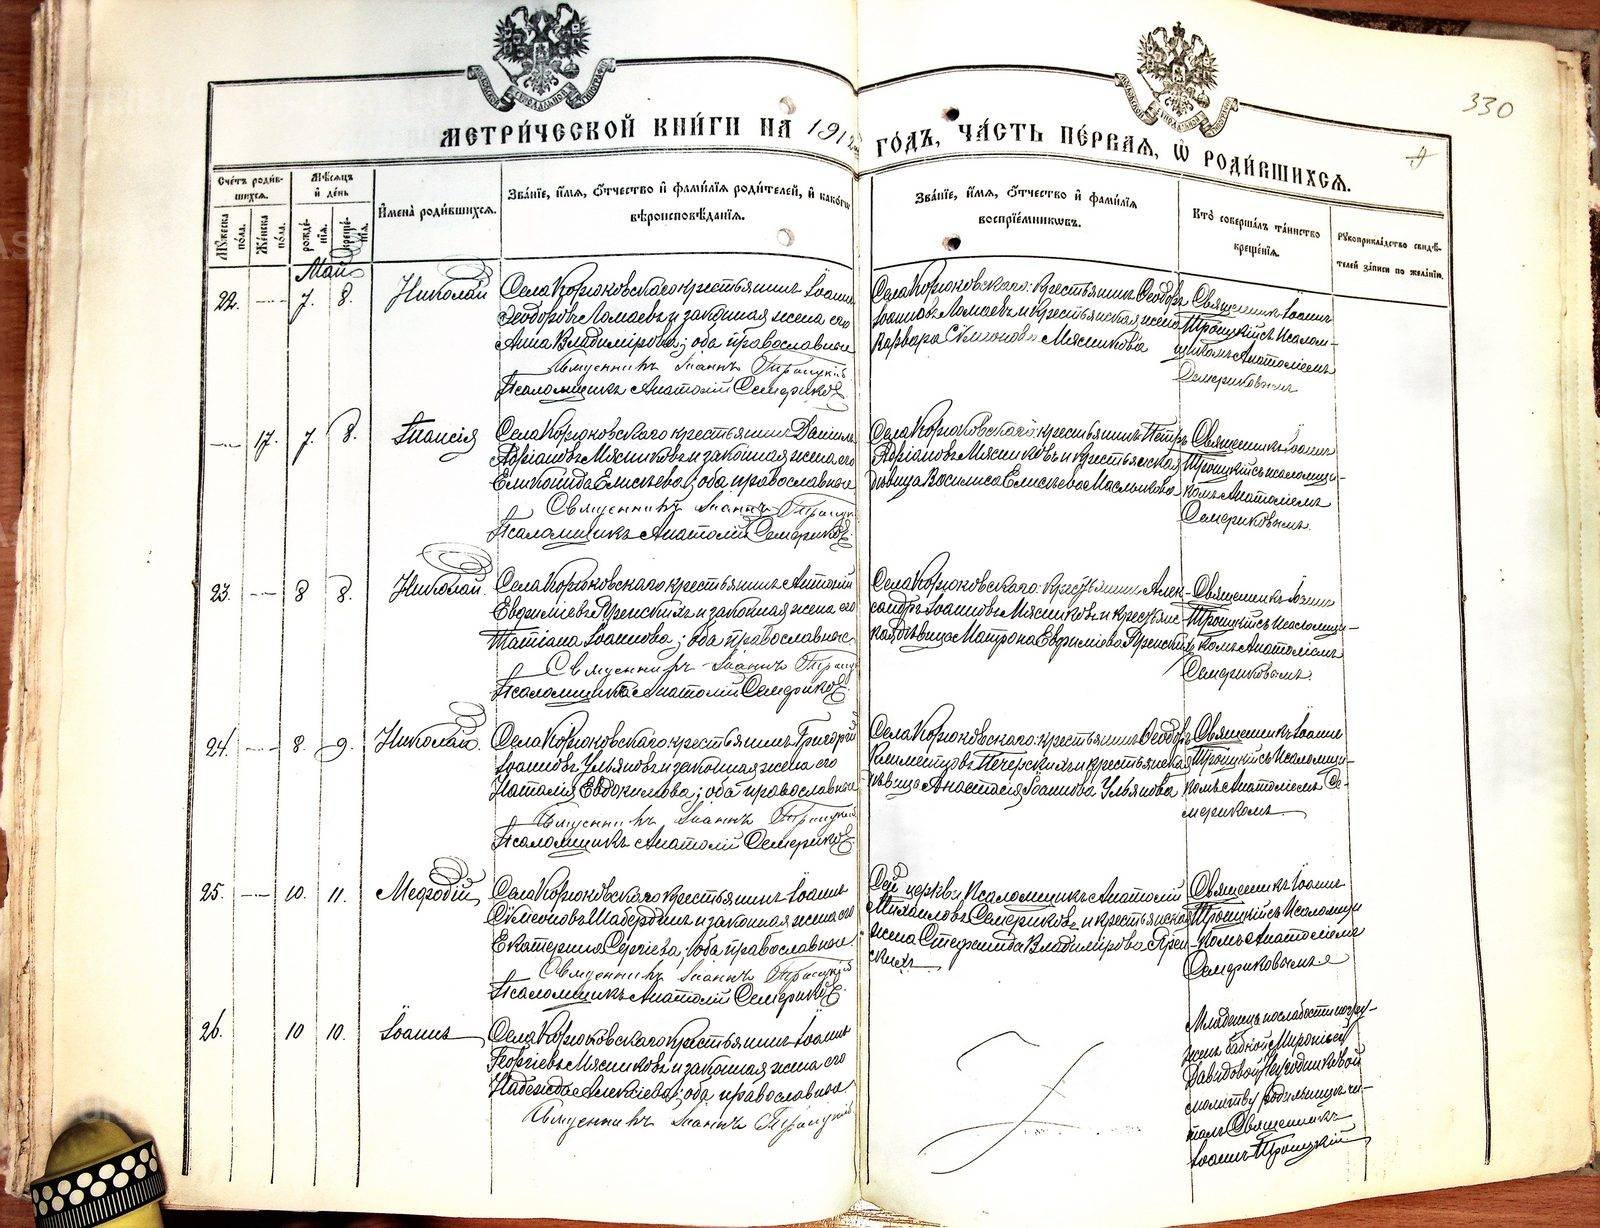 330
МЕТРИ́ЧЕСКОЙ КНИ́ГИ НА 1912 ГО́ДЪ, ЧА́СТЬ ПЕ́РВАЯ, Ѡ РОДИ́ВШИХСЯ.
Сче́тъ роди́вшихся.
Мѣ́сяцъ и҆ де́нь
Мꙋ́жеска по́ла.
Же́нска по́ла.
рожде́нїя.
креще́нїя.
И҆мена̀ роди́вшихся.
Зва́нїе, и҆́мя, ѻ҆́тчество и҆ фами́лїя роди́телей, и҆ како́гѡ
вѣроисповѣ́данїя.
Зва́нїе, и҆́мя, ѻ҆́тчество и҆ фами́лїя
воспрїе́мникѡвъ.
Кто̀ соверша́лъ та́инство
креще́нїя.
Рꙋкоприкла́дство свидѣ́-
телей за́писи по жела́нїю.
Май
22. 7. 8. Николай
Села Корюковскаго крестьянинъ Іоаннъ
Ѳеодоровъ Ломаевъ и законная жена его
Анна Владимірова; оба православные
Священникъ Іоаннъ Троицкій
Псаломщикъ Анатолій Семериковъ
Села Корюковскаго: крестьянинъ Ѳеодоръ
Іоанновъ Ломаевъ и крестьянская жена
Варвара Симеонова Мясникова
Священникъ Іоаннъ
Троицкій съ псалом-
щикомъ Анатоліемъ
Семериковымъ
17. 7. 8. Таисія
Села Корюковскаго крестьянинъ Даніилъ
Адріановъ Мясниковъ и законная жена его
Елисѣева; оба православные
Священникъ Іоаннъ Троицкій
Псаломщикъ Анатолій Семериковъ
Села Корюковскаго: крестьянинъ Петръ
Адріановъ Мясниковъ и крестьянская
дѣвица Василиса Елисѣева Маслыкова
Священникъ Іоаннъ
Троицкій съ псаломщи-
комъ Анатоліемъ
Семериковымъ.
23. 8 8. Николай.
Села Корюковскаго крестьянинъ Антоній
Евфиміевъ Яренскихъ и законная жена его
Татіана Іоаннова; оба православные
Священникъ Іоаннъ Троицкій
Псаломщикъ Анатолій Семериковъ
Села Корюковскаго: крестьянинъ Алек-
сандръ Іоанновъ Мясниковъ и крестьянс-
кая дѣвица Матрона Евфиміева Яренскихъ
Священникъ Іоаннъ
Троицкій съ псаломщи-
комъ Анатоліемъ
Семериковымъ.
24. 8. 9. Николай.
Села Корюковскаго крестьянинъ Григорій
Іоанновъ Ульяновъ и законная жена его
Наталія Евдокимова; оба православные
Священникъ Іоаннъ Троицкій
Псаломщикъ Анатолій Семериковъ
Села Корюковскаго: крестьянинъ Ѳеодоръ
Климентовъ Печерскихъ и крестьянская
дѣвица Анастасія Іоаннова Ульянова
Священникъ Іоаннъ
Троицкій съ псаломщи-
комъ Анатоліемъ Се-
мерикомъ
25. 10. 11. Меѳодій
Села Корюковскаго крестьянинъ Іоаннъ
Сѵмеоновъ и законная жена его
Екатерина Сергіева; оба православные
Священникъ Іоаннъ Троицкій
Псаломщикъ Анатолій Семериковъ
Сей церкви Псаломщикъ Анатолій
Михаиловъ Семериковъ и крестьянская
жена Стефанида Владимірова Ярен-
скихъ
Священникъ Іоаннъ
Троицкій съ псаломщи-
комъ Анатоліемъ
Семериковымъ
26. 10 10. Іоаннъ
Села Корюковскаго крестьянинъ Іоаннъ
Георгіевъ Мясниковъ и законная жена его
Надежда Алексіева; оба православные
Священникъ Іоаннъ Троицкій
Младенецъ по слабости погру-
женъ бабкой
Давидовой
молитву родильницѣ чи-
талъ Священникъ
Іоаннъ Троицкій